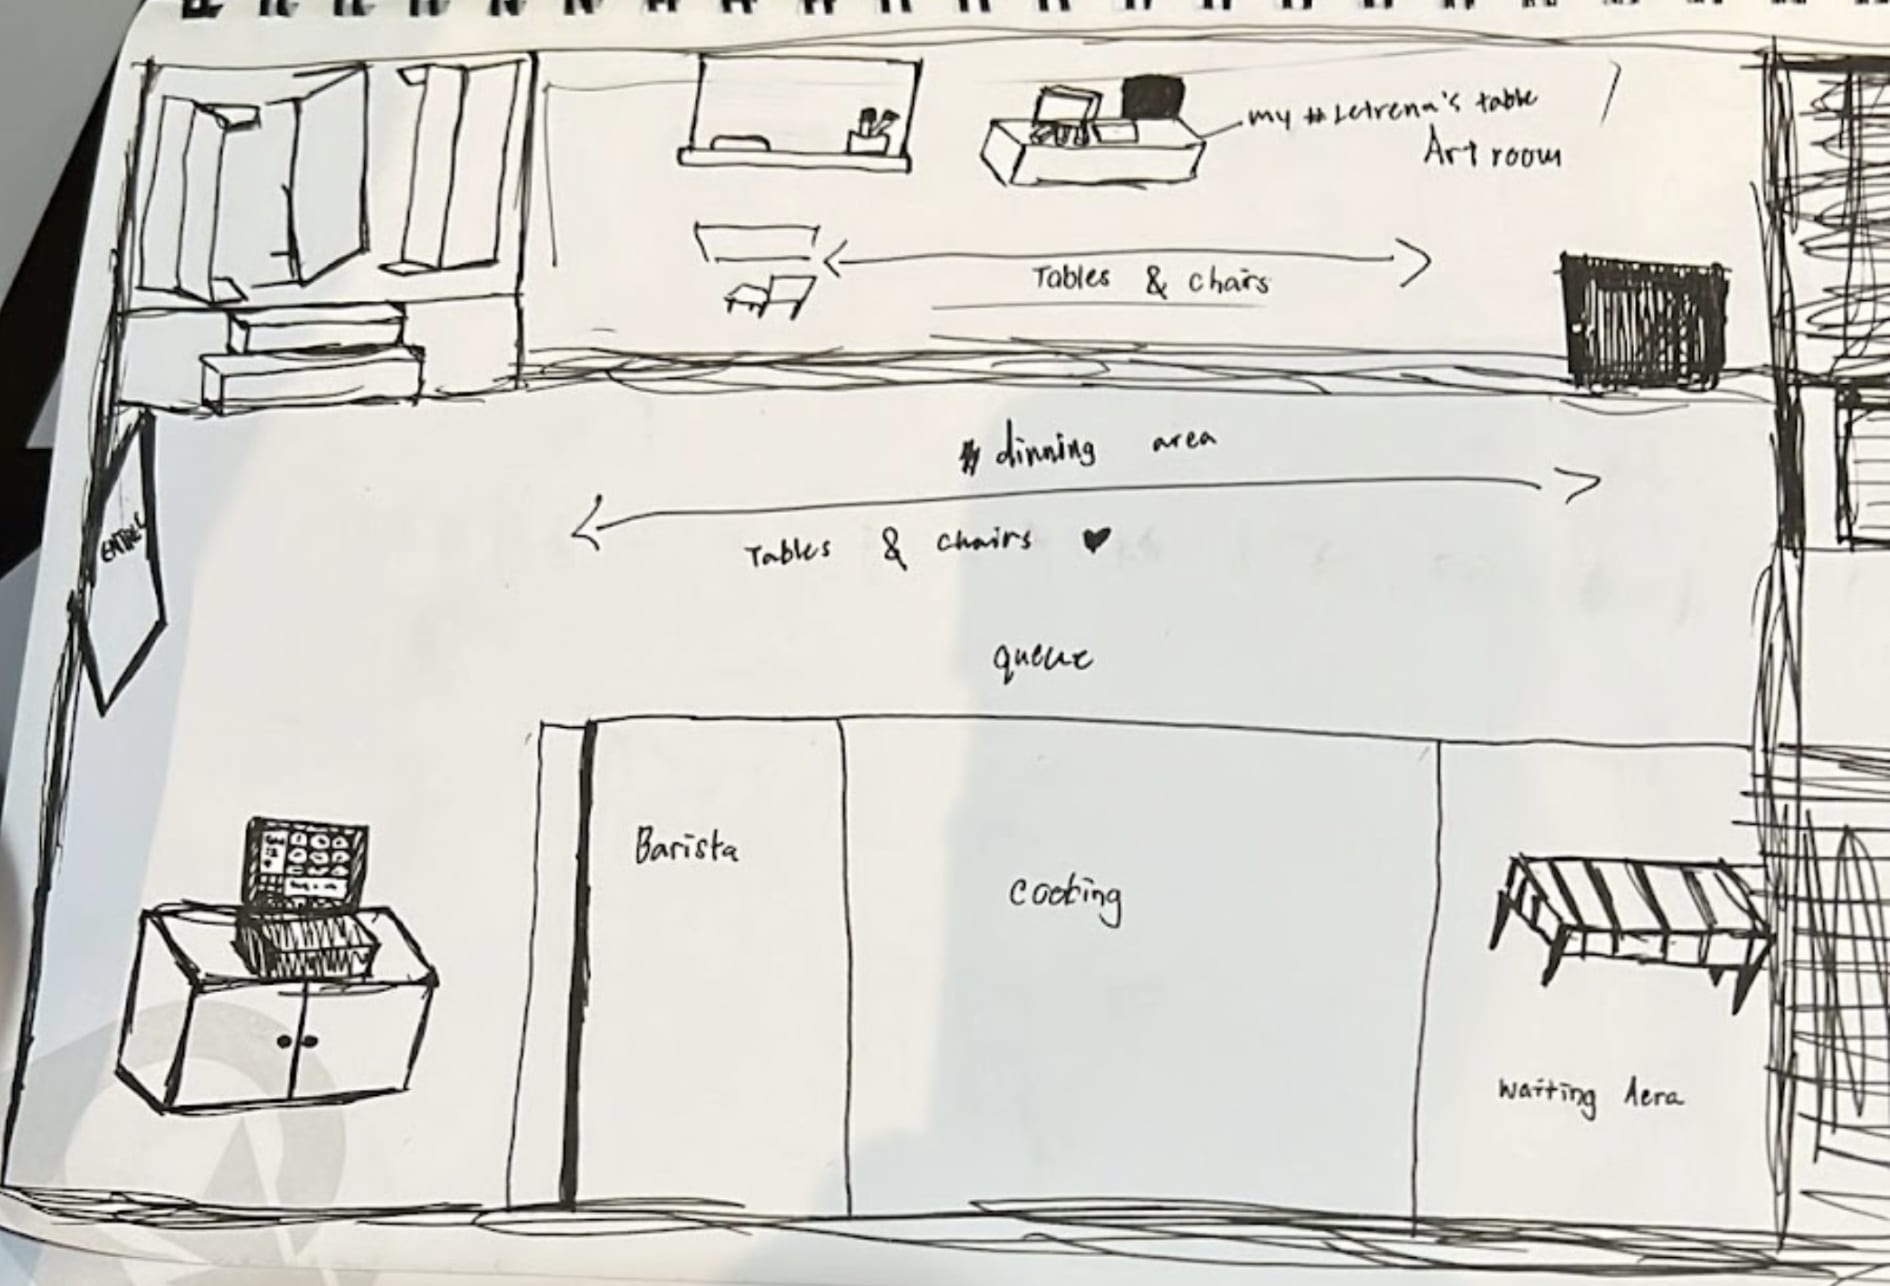 my Letrena's table
Art room
Tables & chairs
dinning area
Tables & chairs ♥
queue
Barista
cooking
waiting Aera